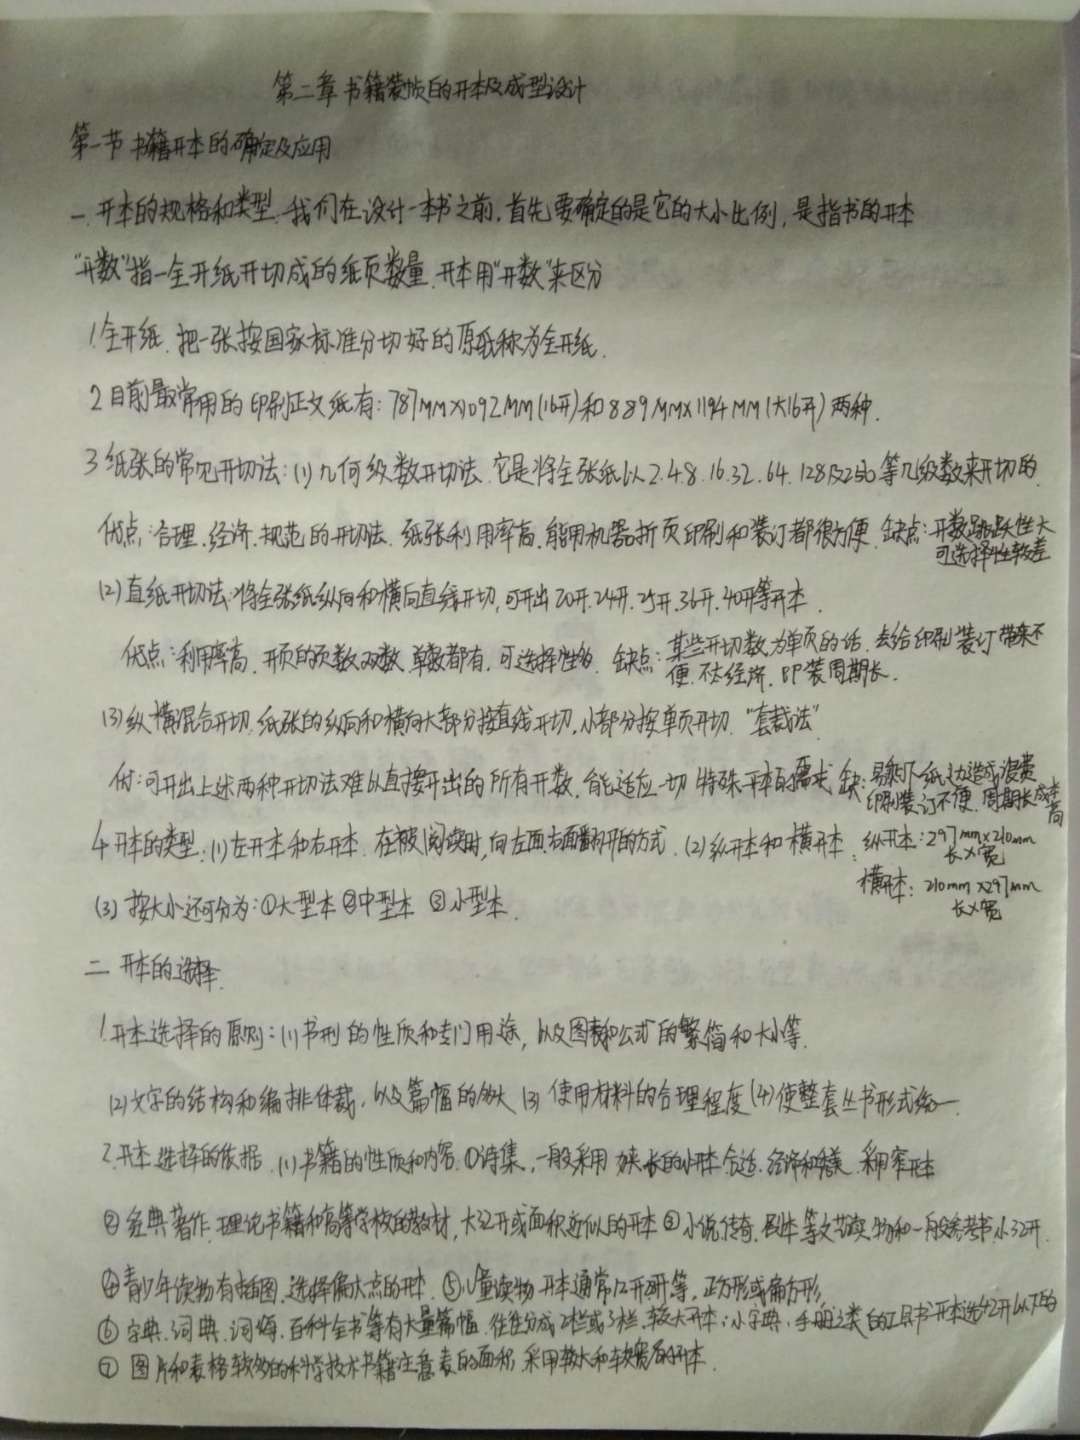 第二章 书籍装帧的开本及成型设计
第一节 书籍开本的确定及应用
一.开本的规格和类型.我们在设计一本书之前,首先要确定的是它的大小比例,是指书的开本
"开数"指一全开纸开切成的纸页数量.开本用"开数"来区分
1.全开纸.把一张按国家标准分切好的原纸称为全开纸.
2 目前最常用的印刷正文纸有:787MM×1092MM(16开)和889MM×1194MM(大16开)两种.
3 纸张的常见开切法:(1)几何级数开切法.它是将全张纸以2.4.8.16.32.64.128及256等几级数来开切的.
优点:合理.经济.规范的开切法.纸张利用率高,能用机器折页印刷和装订都很方便.缺点:开数跳跃性大
可选择性较差
(2)直纸开切法:将全张纸纵向和横向直线开切,可开出20开.24开.25开.36开.40开等开本.
优点:利用率高.开页的页数双数.单数都有.可选择性多.缺点:某些开切数为单页的话.会给印刷装订带来不
便.不太经济.印装周期长.
(3)纵横混合开切.纸张的纵向和横向大部分按直线开切,小部分按单页开切."套裁法"
优:可开出上述两种开切法难以直接开出的所有开数.能适应一切特殊开本的需求.缺:易剩下纸边造成浪费
印刷装订不便.周期长成本高
4.开本的类型:(1)左开本和右开本.在被阅读时,向左面.右面翻开的方式.(2)纵开本和横开本:纵开本:297mm×210mm
长×宽
横开本:210mm×297mm
长×宽
(3)按大小还可分为:①大型本②中型本 ③小型本.
二.开本的选择.
1.开本选择的原则:(1)书刊的性质和专门用途,以及图表和公式的繁简和大小等.
(2)文字的结构和编排体裁,以及篇幅的多大(3)使用材料的合理程度(4)使整套丛书形式统一.
2.开本选择的依据.(1)书籍的性质和内容.①诗集,一般采用狭长的小开本.合适.经济和秀美.采用窄开本
②经典著作.理论书籍和高等学校的教材,大32开或面积近似的开本③小说.传奇.剧本等文艺读物和一般参考书.小32开.
④青少年读物有插图.选择偏大点的开本.⑤儿童读物.开本通常12开24开等,正方形或扁方形.
⑥字典.词典.词海.百科全书等有大量篇幅.往往分成2栏或3栏.较大开本;小字典.手册之类的工具书开本选42开以下的
⑦图片和表格较多的科学技术书籍注意表的面积,采用较大和较宽的开本.